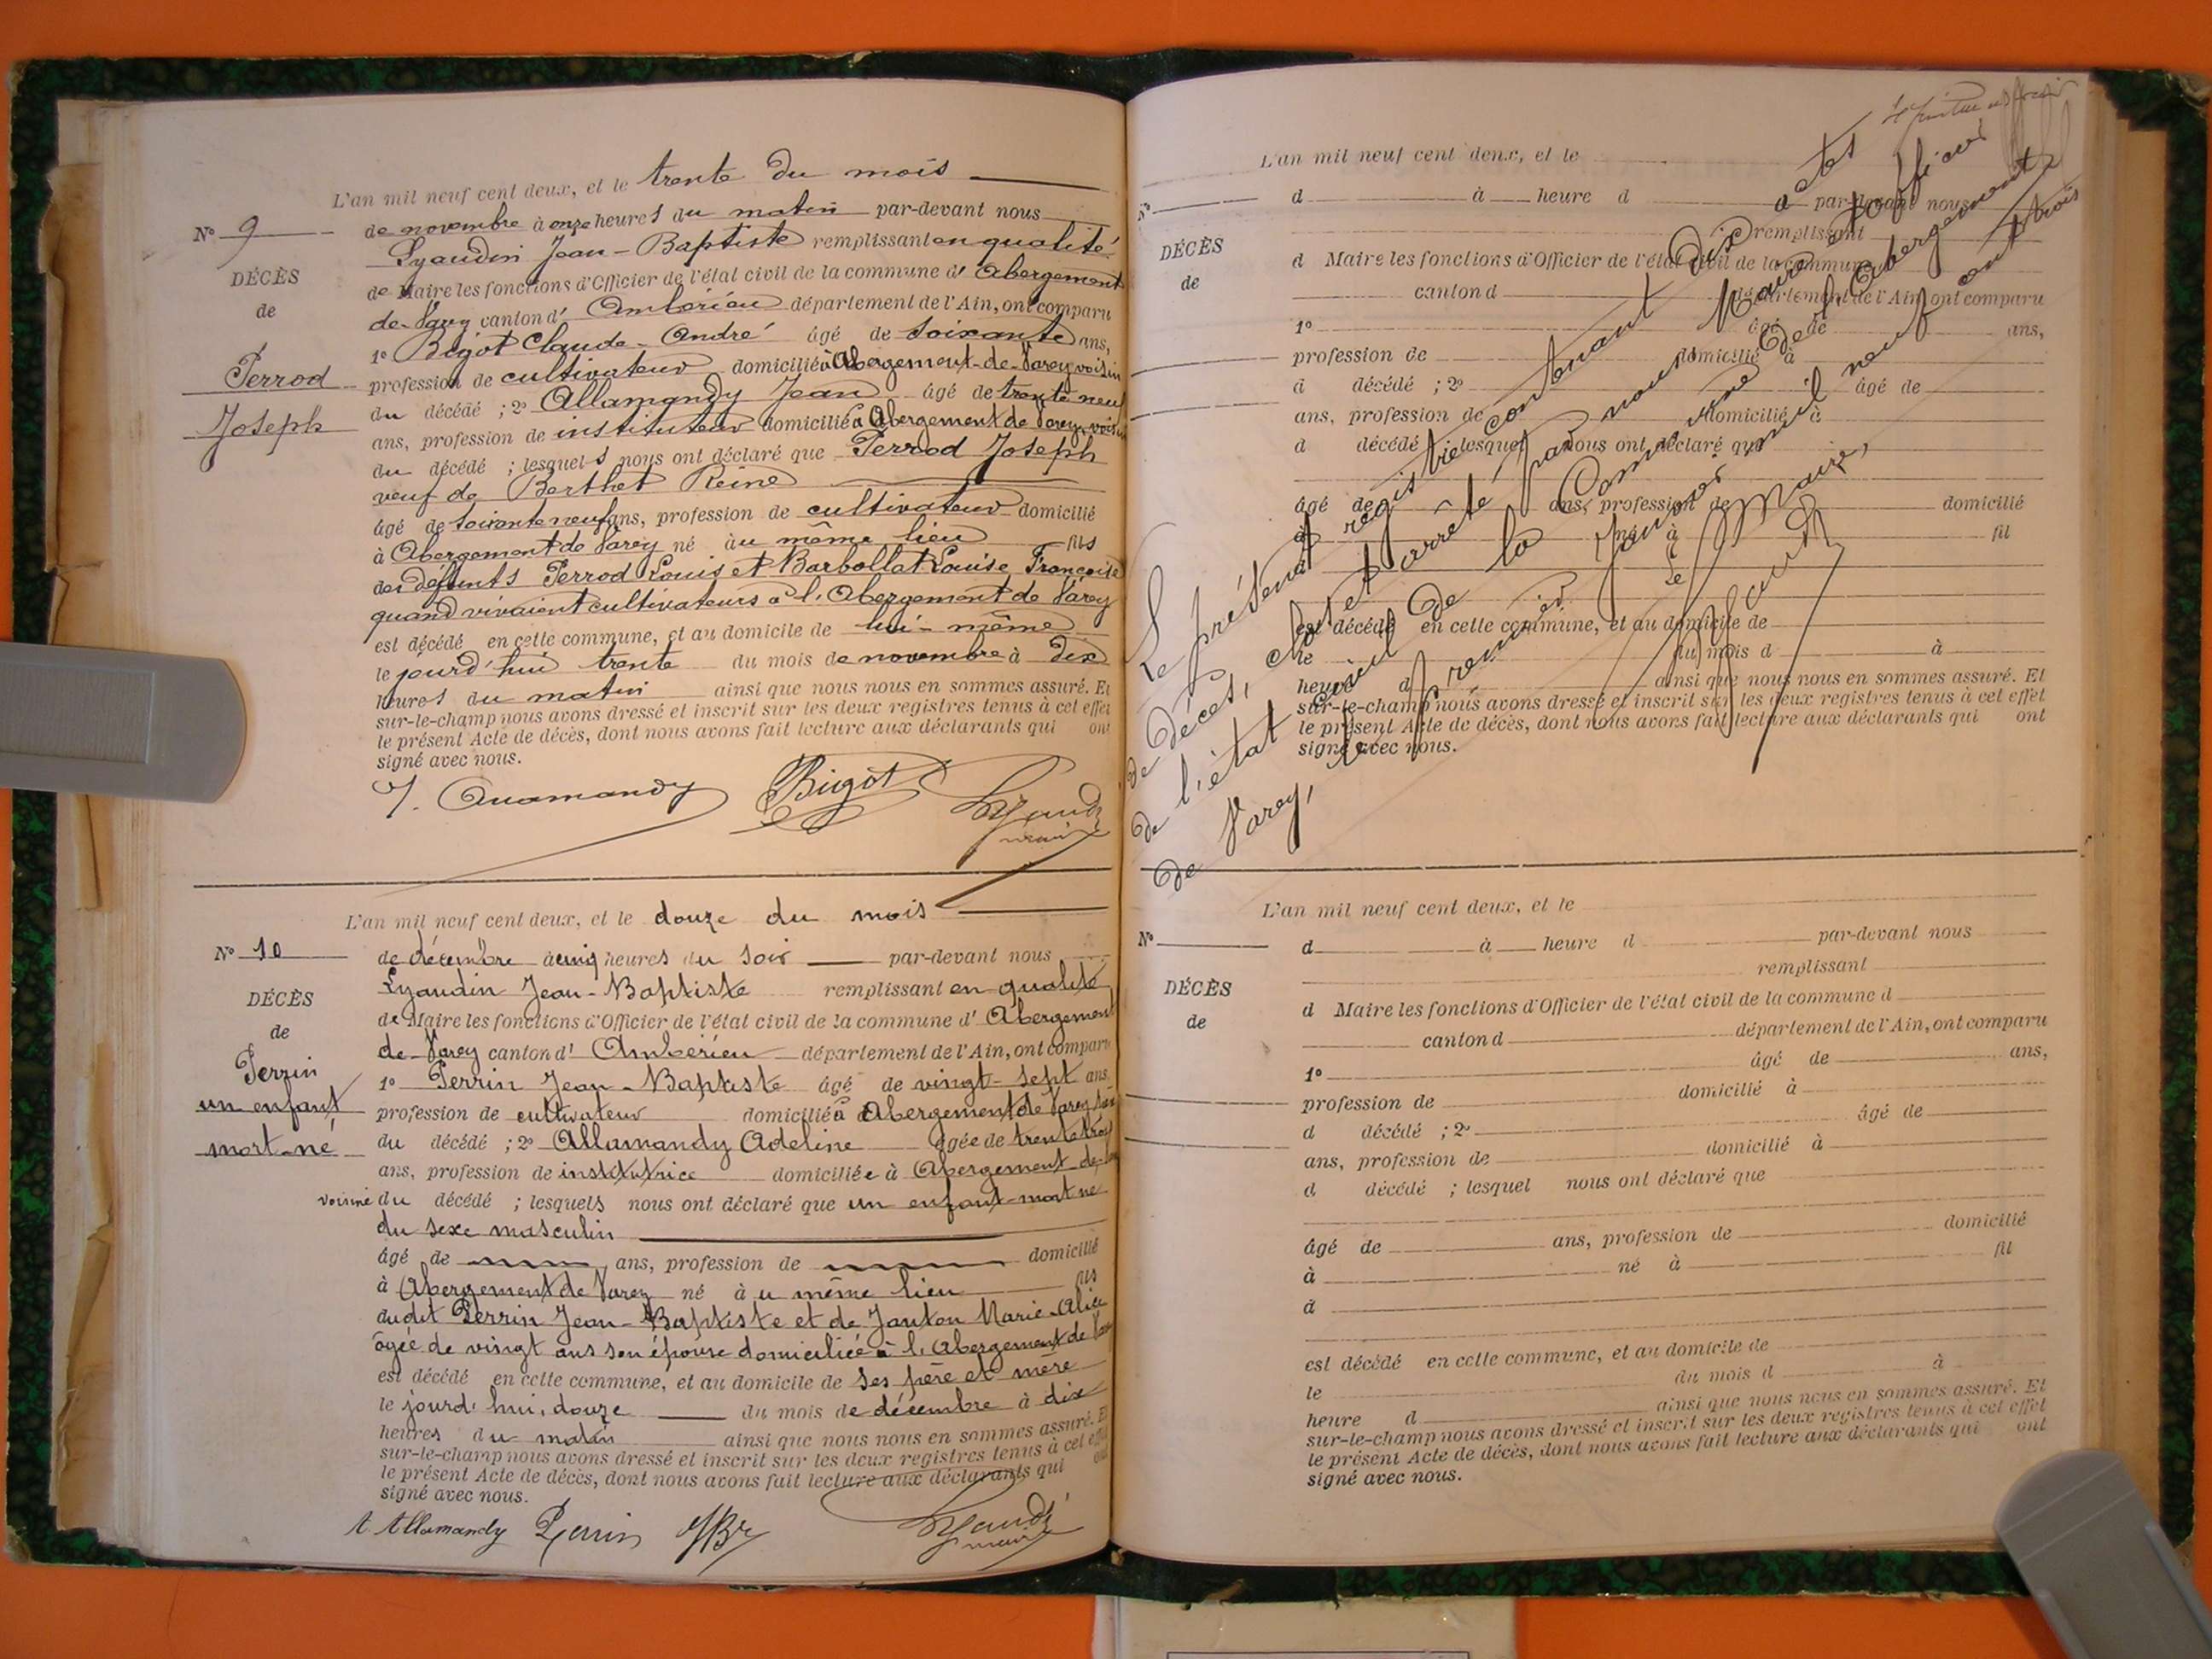 L'an mil neuf cent deux, et le trente du mois
N° 9 de novembre à onze heures du matin par-devant nous
Lyaudin Jean-Baptiste remplissant en qualité
DÉCÈS de Maire les fonctions d'Officier de l'état civil de la commune d' Abergement
de de-Varey canton d' Ambérieu département de l'Ain, ont comparu
1° Bigot Claude-André âgé de soixante ans,
Perrod profession de cultivateur domicilié à Abergement-de-Varey voisin
du décédé ; 2° Allamandy Jean âgé de trente neuf
Joseph ans, profession de instituteur domicilié à Abergement de Varey, voisin
du décédé ; lesquels nous ont déclaré que Perrod Joseph
veuf de Berthet Reine
âgé de soixante neuf ans, profession de cultivateur domicilié
à Abergement de Varey né au même lieu fils
des défunts Perrod Louis et Barbollat Louise Françoise
quand vivaient cultivateurs à l'Abergement de Varey
est décédé en cette commune, et au domicile de lui-même
le jourd'hui trente du mois de novembre à dix
heures du matin ainsi que nous nous en sommes assuré. Et
sur-le-champ nous avons dressé et inscrit sur les deux registres tenus à cet effet
le présent Acte de décès, dont nous avons fait lecture aux déclarants qui ont
signé avec nous.
Bigot
L'an mil neuf cent deux, et le douze du mois
N° 10 de décembre à cinq heures du soir par-devant nous
Lyaudin Jean-Baptiste remplissant en qualité
DÉCÈS de Maire les fonctions d'Officier de l'état civil de la commune d' Abergement
de de-Varey canton d' Ambérieu département de l'Ain, ont comparu
Perrin 1° Perrin Jean-Baptiste âgé de vingt-sept ans
un enfant profession de cultivateur domicilié à Abergement de Varey
mort-né du décédé ; 2° Allamandy Adeline âgée de trente trois
ans, profession de institutrice domiciliée à Abergement-de-
voisine du décédé ; lesquels nous ont déclaré que un enfant mort né
du sexe masculin
âgé de ans, profession de domicilié
à Abergement de Varey né à u même lieu fils
dudit Perrin Jean-Baptiste et de Janton Marie-Alice
âgée de vingt ans son épouse domiciliée à l'Abergement de
est décédé en cette commune, et au domicile de ses père et mère
le jourd'hui, douze du mois de décembre à dix
heures du matin ainsi que nous nous en sommes assuré. Et
sur-le-champ nous avons dressé et inscrit sur les deux registres tenus à cet effet
le présent Acte de décès, dont nous avons fait lecture aux déclarants qui ont
signé avec nous.
A Allamandy Perrin
L'an mil neuf cent deux, et le
N° d à heure d par-devant nous
remplissant
DÉCÈS d Maire les fonctions d'Officier de l'état civil de la commune
de canton d département de l'Ain, ont comparu
1° âgé de ans,
profession de domicilié à
d décédé ; 2° âgé de
ans, profession de domicilié à
d décédé ; lesquel nous ont déclaré que
âgé de ans, profession de domicilié
à né à fil
d
est décédé en cette commune, et au domicile de
le du mois d à
heure d ainsi que nous nous en sommes assuré. Et
sur-le-champ nous avons dressé et inscrit sur les deux registres tenus à cet effet
le présent Acte de décès, dont nous avons fait lecture aux déclarants qui ont
signé avec nous.
Le présent registre contenant dix actes
de décès, clos et arrêté par nous Maire et officier
de l'état civil de la Commune de l'Abergement
de Varey, le premier janvier mil neuf cent trois
Le Maire,
L'an mil neuf cent deux, et le
N° d à heure d par-devant nous
remplissant
DÉCÈS d Maire les fonctions d'Officier de l'état civil de la commune d
de canton d département de l'Ain, ont comparu
1° âgé de ans,
profession de domicilié à
d décédé ; 2° âgé de
ans, profession de domicilié à
d décédé ; lesquel nous ont déclaré que
âgé de ans, profession de domicilié
à né à fil
d
est décédé en cette commune, et au domicile de
le du mois d à
heure d ainsi que nous nous en sommes assuré. Et
sur-le-champ nous avons dressé et inscrit sur les deux registres tenus à cet effet
le présent Acte de décès, dont nous avons fait lecture aux déclarants qui ont
signé avec nous.